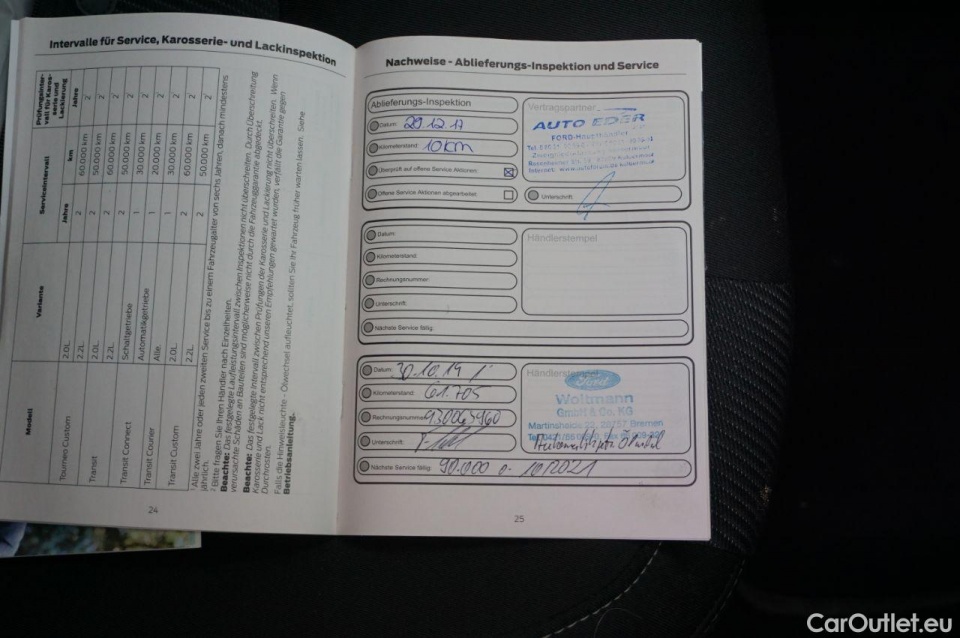 Intervalle für Service, Karosserie- und Lackinspektion
Modell Variante Serviceintervall Prüfungsinter-
vall für Karos-
serie und
Lackierung
Jahre km Jahre
Tourneo Custom 2.0L 2 60.000 km 2
2.2L 2 50.000 km 2
Transit 2.0L 2 60.000 km 2
2.2L 2 50.000 km 2
Transit Connect Schaltgetriebe 1 30.000 km 2
Automatikgetriebe 1 20.000 km 2
Transit Courier Alle. 1 30.000 km 2
Transit Custom 2.0L 2 60.000 km 2
2.2L 2 50.000 km 2
Alle zwei Jahre oder jeden zweiten Service bis zu einem Fahrzeugalter von sechs Jahren, danach mindestens
jährlich.
Bitte fragen Sie Ihren Händler nach Einzelheiten.
Beachte: Das festgelegte Laufleistungsintervall zwischen Inspektionen nicht überschreiten. Durch Überschreitung
verursachte Schäden an Bauteilen sind möglicherweise nicht durch die Fahrzeuggarantie abgedeckt.
Beachte: Das festgelegte Intervall zwischen Prüfungen der Karosserie und Lackierung nicht überschreiten. Wenn
Karosserie und Lack nicht entsprechend unseren Empfehlungen gewartet wurden, verfällt die Garantie gegen
Durchrosten.
Falls die Hinweisleuchte - Ölwechsel aufleuchtet, sollten Sie Ihr Fahrzeug früher warten lassen. Siehe
Betriebsanleitung.
24
Nachweise - Ablieferungs-Inspektion und Service
Ablieferungs-Inspektion
Datum: 29.12.17
Kilometerstand: 10 km
Überprüft auf offene Service Aktionen:
Offene Service Aktionen abgearbeitet:
Vertragspartner
AUTO EDER
FORD-Haupthändler
Unterschrift:
Datum:
Kilometerstand:
Rechnungsnummer:
Unterschrift:
Nächste Service fällig:
Händlerstempel
Datum: 30.10.19
Kilometerstand: 61.705
Rechnungsnummer: 930063960
Unterschrift:
Nächste Service fällig: 90.000 o. 10/2021
Händlerstempel
Ford
Woltmann
GmbH & Co. KG
Martinsheide 22, 28757 Bremen
25
CarOutlet.eu